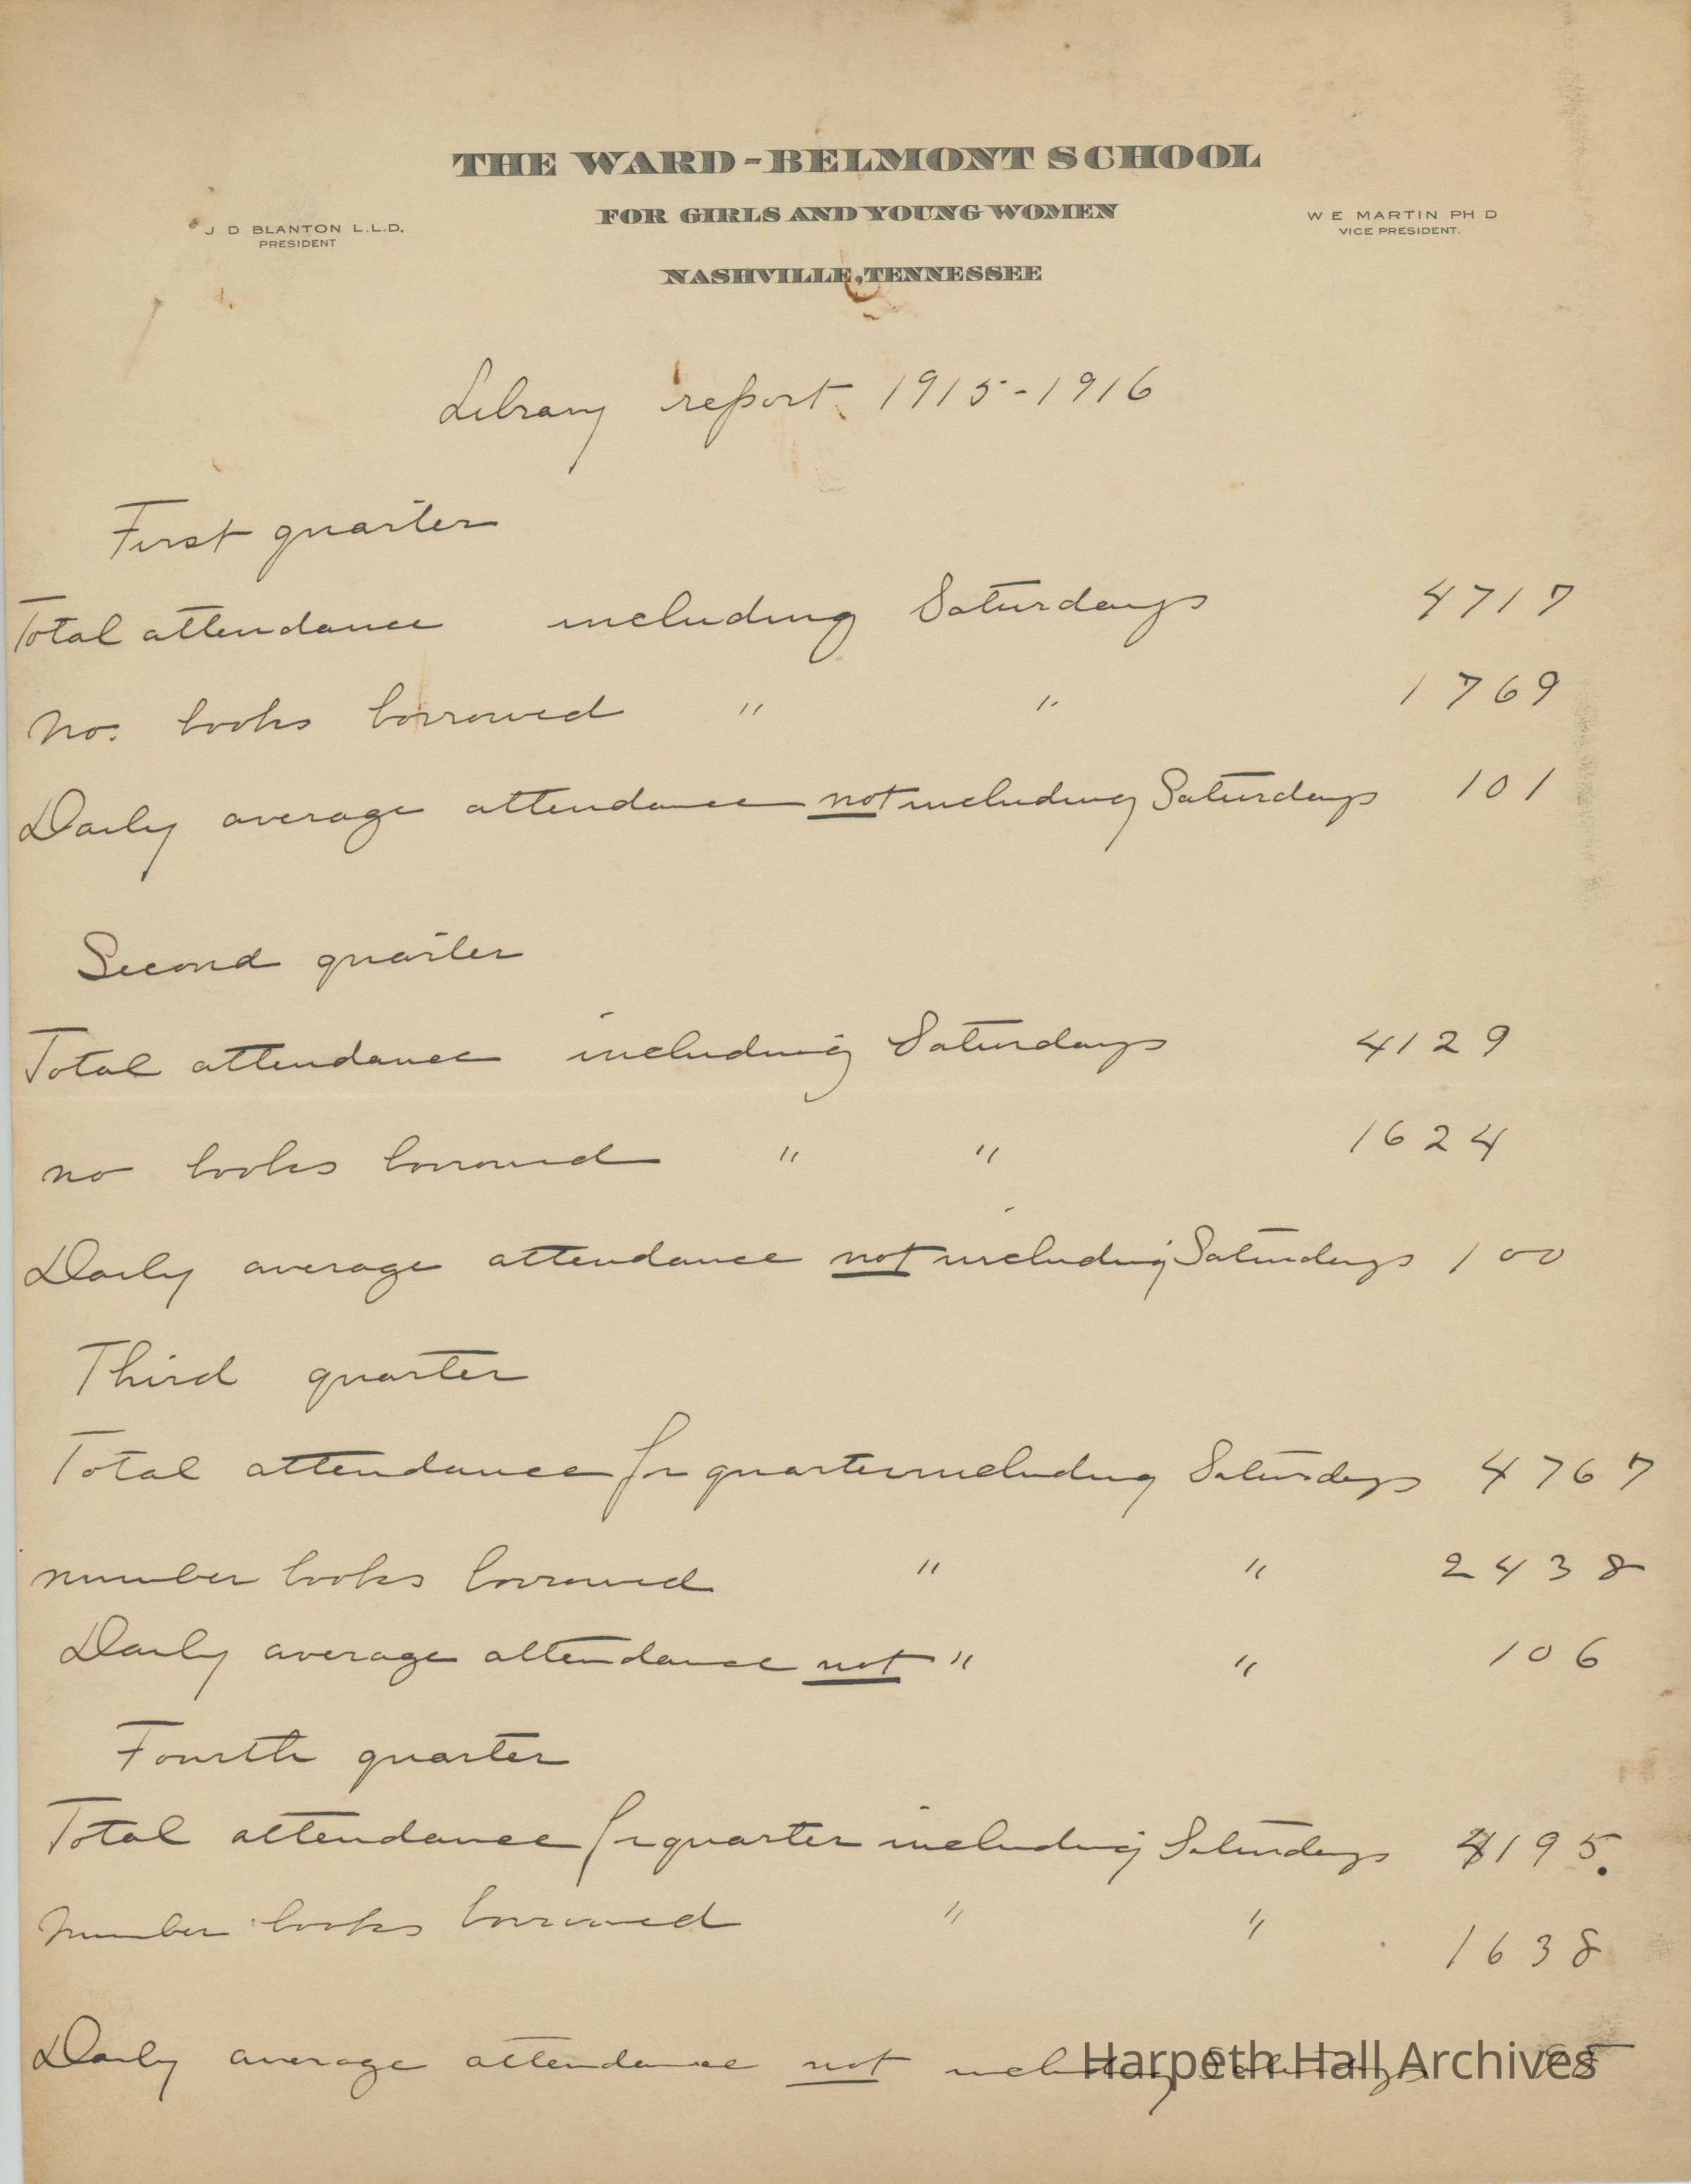 THE WARD-BELMONT SCHOOL
FOR GIRLS AND YOUNG WOMEN
J D BLANTON L.L.D.
PRESIDENT
W E MARTIN PH D
VICE PRESIDENT.
NASHVILLE, TENNESSEE
Library report 1915-1916
First quarter
Total attendance including Saturdays 4717
No. books borrowed " " 1769
Daily average attendance not including Saturdays 101
Second quarter
Total attendance including Saturdays 4129
no books borrowed " " 1624
Daily average attendance not including Saturdays 100
Third quarter
Total attendance for quarter including Saturdays 4767
number books borrowed " " 2438
Daily average attendance not " " 106
Fourth quarter
Total attendance for quarter including Saturdays 4195.
Number books borrowed " " 1638
Daily average attendance not including Saturdays
Harpeth Hall Archives